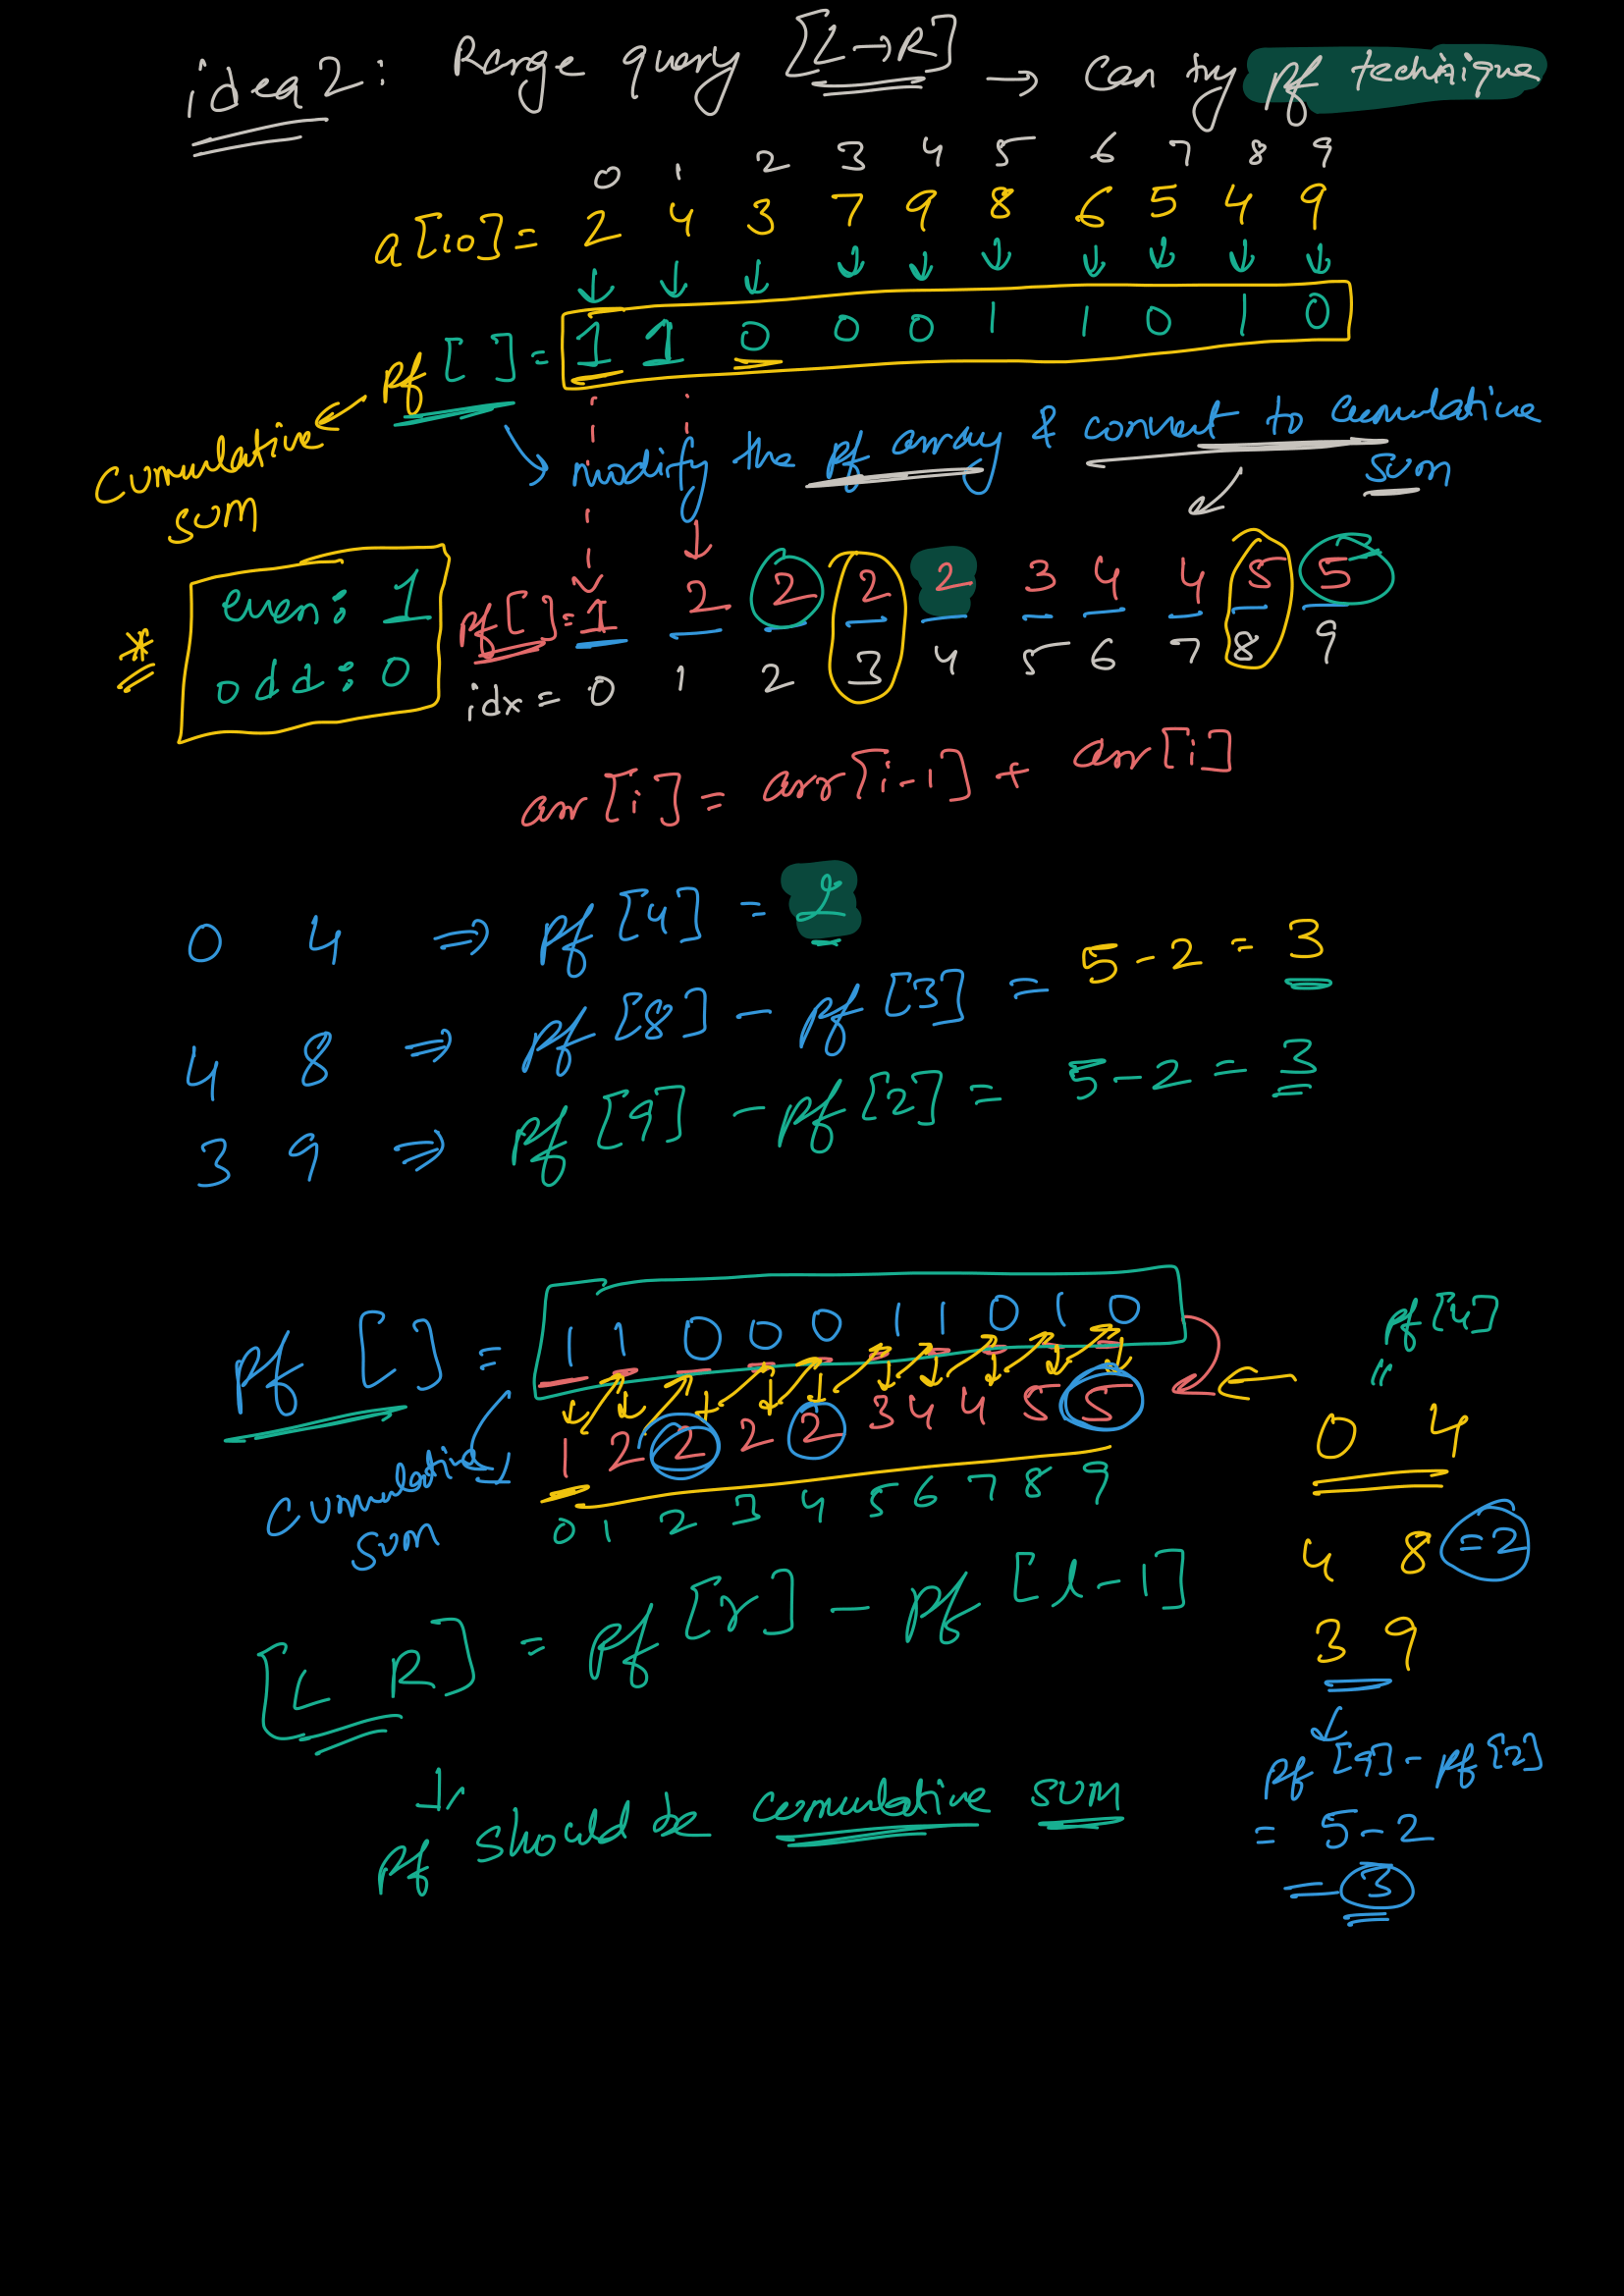 idea 2: Range query [L→R] → can try pf technique
0 1 2 3 4 5 6 7 8 9
a[10] = 2 4 3 7 9 8 6 5 4 9
↓ ↓ ↓ ↓ ↓ ↓ ↓ ↓ ↓ ↓
pf [ ] = 1 1 0 0 0 1 1 0 1 0
Cumulative
sum
modify the pf array & convert to cumulative
sum
* even: 1
odd: 0
pf[ ] = 1 2 2 2 2 3 4 4 5 5
idx = 0 1 2 3 4 5 6 7 8 9
arr[i] = arr[i-1] + arr[i]
0 4 ⇒ pf[4] = 2
4 8 ⇒ pf[8] - pf[3] = 5-2 = 3
3 9 ⇒ pf[9] - pf[2] = 5-2 = 3
pf [ ] = 1 1 0 0 0 1 1 0 1 0
Cumulative
sum
1 2 2 2 2 3 4 4 5 5
0 1 2 3 4 5 6 7 8 9
pf[4]
"
0 4
4 8 = 2
3 9
↓
pf[9] - pf[2]
= 5-2
= 3
[L R] = pf[r] - pf[l-1]
↓
pf should be cumulative sum